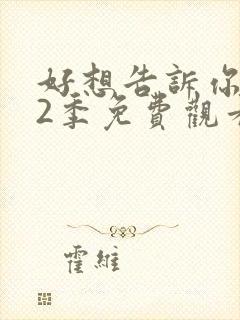 好想告訴你
2季免費觀
霍維